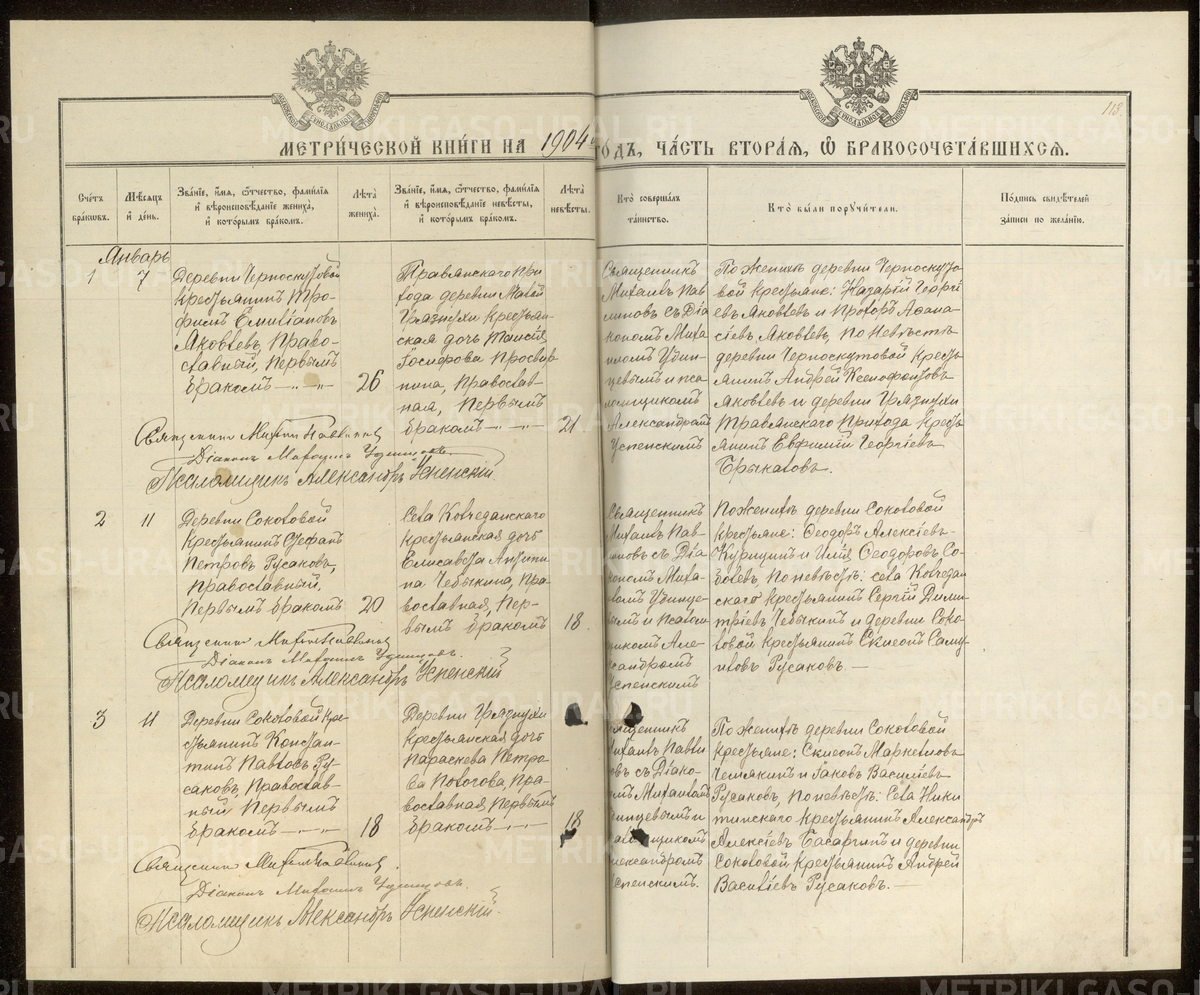 113.
МЕТРИЧЕСКОЙ КНИГИ НА 1904й ГОДЪ, ЧАСТЬ ВТОРАЯ, Ѡ БРАКОСОЧЕТАВШИХСЯ.
Счетъ браковъ.
Мѣсяцъ и день.
Званіе, имя, отчество, фамилія и вѣроисповѣданіе жениха, и которымъ бракомъ.
Лѣта жениха.
Званіе, имя, отчество, фамилія и вѣроисповѣданіе невѣсты, и которымъ бракомъ.
Лѣта невѣсты.
Кто совершалъ таинство.
Кто были поручители.
Подпись свидѣтелей записи по желанію.
Январь
1
7
Деревни Черноскутовой
крестьянинъ Тро-
фимъ Емиліановъ
Яковлевъ, Право-
славный, Первымъ
бракомъ
26
Травянскаго При-
хода деревни Малой
Грязнухи крестьян-
ская дочь Таисія
Просвир-
нина, Православ-
ная, Первымъ
бракомъ
21.
Священникъ
Михаилъ Пав-
линовъ съ Діа
кономъ Миха
иломъ Удин-
цевымъ и пса
ломщикомъ
Александромъ
Успенскимъ
По женихѣ деревни Черноскуто-
вой крестьяне: Назарій Георгі-
евъ Яковлевъ и Прохоръ Аѳана-
сіевъ Яковлевъ, По Невѣстѣ
деревни Черноскутовой кресть-
янинъ Андрей Ксенофонтовъ
Яковлевъ и деревни Грязнухи
Травянскаго Прихода кресть-
янинъ Евфимій Георгіевъ
Брыкаловъ.
Священникъ Михаилъ Павлиновъ
Діаконъ Михаилъ Удинцовъ.
Псаломщикъ Александръ Успенскій.
2
11
Деревни Соколовой
крестьянинъ Стефанъ
Петровъ Русаковъ,
Православный,
Первымъ бракомъ
20
Села Колчеданскаго
крестьянская дочь
Елисавета Антипи
на Чебыкина, Пра-
вославная, Пер-
вымъ бракомъ
18.
Священникъ
Михаилъ Пав-
линовъ съ Діа
кономъ Миха-
иломъ Удинце-
вымъ и псалом
щикомъ Але-
ксандромъ
Успенскимъ
По женихѣ деревни Соколовой
крестьяне: Ѳеодоръ Алексіевъ
Курицинъ и Илія Ѳеодоровъ Со-
болевъ, По невѣстѣ: села Колчедан
скаго крестьянинъ Сергій Дими-
тріевъ Чебыкинъ и деревни Соко-
ловой крестьянинъ Симеонъ Саму-
иловъ Русаковъ.
Священникъ Михаилъ Павлиновъ
Діаконъ Михаилъ Удинцовъ.
Псаломщикъ Александръ Успенскій
3
11
Деревни Соколовой кре-
стьянинъ Констан-
тинъ Павловъ Ру-
саковъ, Православ-
ный, Первымъ
бракомъ
18
Деревни Грязнухи
крестьянская дочь
Параскева Петро-
ва Пологова, Пра-
вославная, Первымъ
бракомъ
18
Священникъ
Михаилъ Павли
новъ съ Діако-
номъ Михаиломъ
Удинцевымъ и
псаломщикомъ
Александромъ
Успенскимъ.
По женихѣ деревни Соколовой
крестьяне: Симеонъ Маркелловъ
Чемякинъ и Іаковъ Василіевъ
Русаковъ, По невѣстѣ: Села Ники
тинскаго крестьянинъ Александръ
Алексіевъ Басаргинъ и деревни
Соколовой крестьянинъ Андрей
Василіевъ Русаковъ.
Священникъ Михаилъ Павлиновъ.
Діаконъ Михаилъ Удинцовъ.
Псаломщикъ Александръ Успенскій.
METRIKI.GASO-URAL.RU